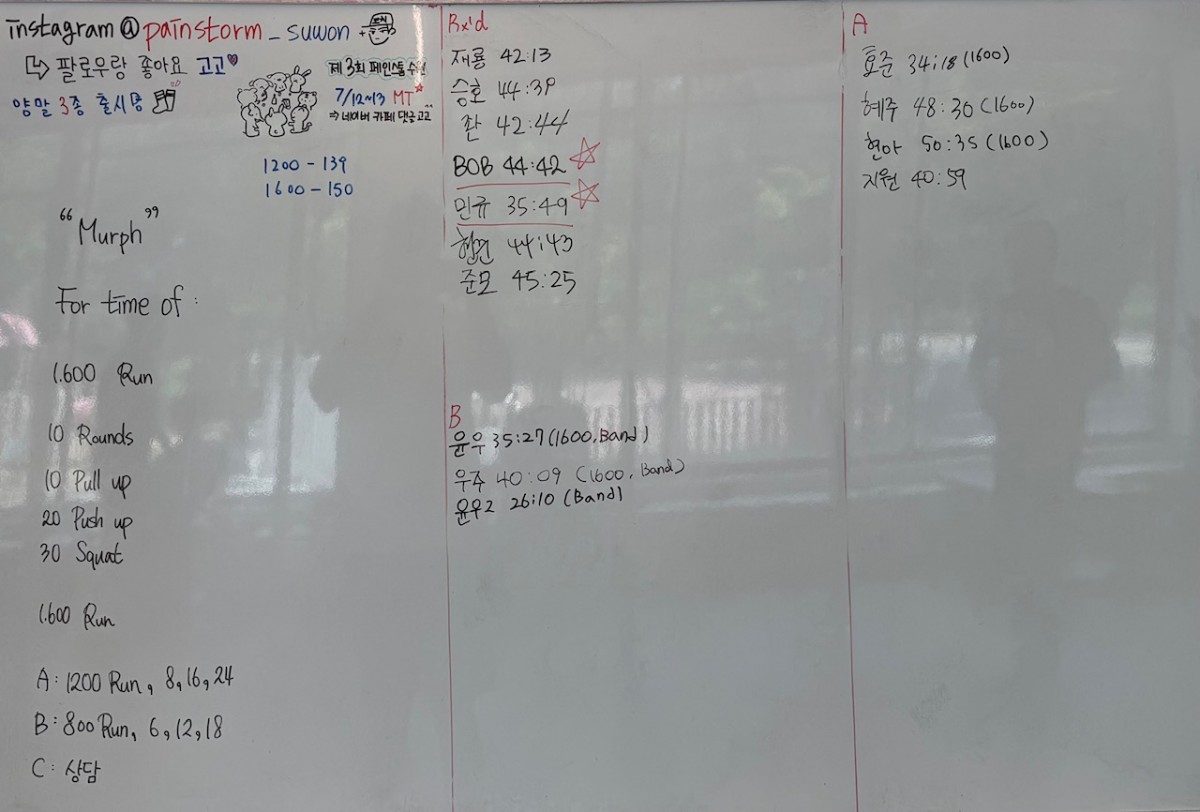 instagram @ painstorm_suwon +
↳ 팔로우랑 좋아요 고고♥
양말 3종 출시중
제 3회 페인스톰 수원
7/12~13 MT☆
⇒ 네이버 카페 댓글 고고
1200 - 139
1600 - 150
"Murph"
For time of :
1.600 Run
10 Rounds
10 Pull up
20 Push up
30 Squat
1.600 Run
A : 1200 Run, 8, 16, 24
B : 800 Run, 6, 12, 18
C : 상담
Rx'd
재룡 42:13
승호 44:39
좐 42:44
BOB 44:42 ☆
민규 35:49 ☆
44:43
준모 45:25
B
윤우 35:27 (1600, Band)
우주 40:09 (1600, Band)
윤우2 26:10 (Band)
A
효준 34:18 (1600)
혜주 48:30 (1600)
현아 50:35 (1600)
지원 40:59